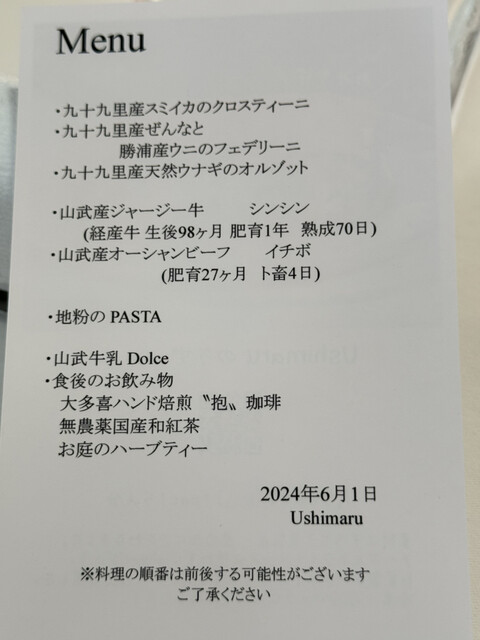 Menu
・九十九里産スミイカのクロスティーニ
・九十九里産ぜんなと
勝浦産ウニのフェデリーニ
・九十九里産天然ウナギのオルゾット
・山武産ジャージー牛 シンシン
(経産牛 生後98ヶ月 肥育1年 熟成70日)
・山武産オーシャンビーフ イチボ
(肥育27ヶ月 ト畜4日)
・地粉の PASTA
・山武牛乳 Dolce
・食後のお飲み物
大多喜ハンド焙煎〝抱〟珈琲
無農薬国産和紅茶
お庭のハーブティー
2024年6月1日
Ushimaru
※料理の順番は前後する可能性がございます
ご了承ください